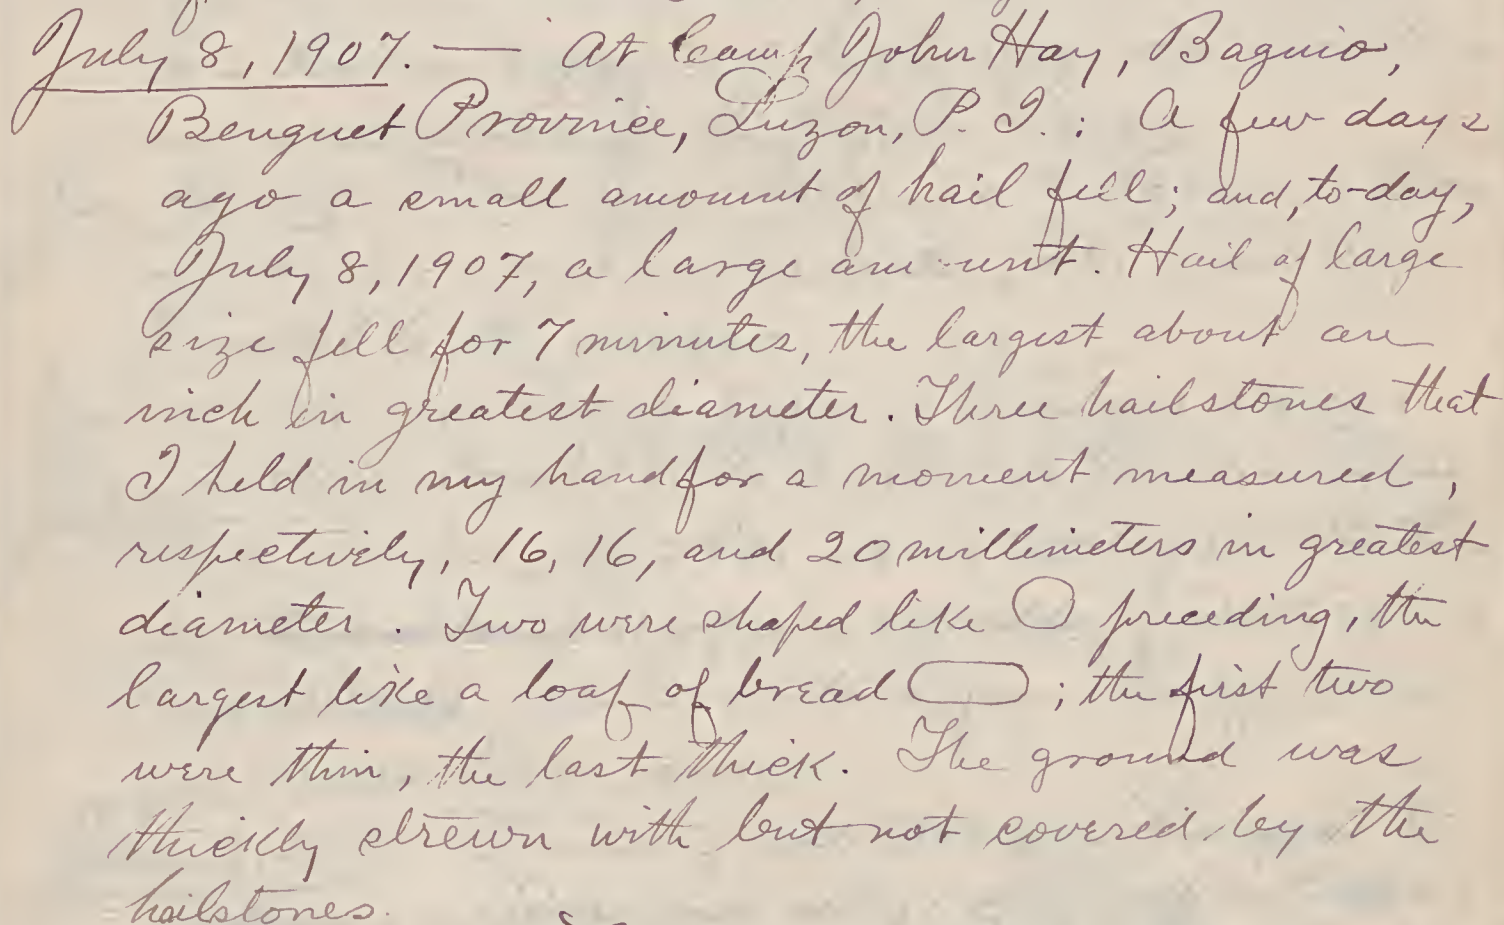 July 8, 1907. — At Camp John Hay, Baguio,
Benguet Province, Luzon, P. I. : A few days
ago a small amount of hail fell; and, to-day,
July 8, 1907, a large amount. Hail of large
size fell for 7 minutes, the largest about an
inch in greatest diameter. Three hailstones that
I held in my hand for a moment measured,
respectively, 16, 16, and 20 millimeters in greatest
diameter. Two were shaped like preceding, the
largest like a loaf of bread ; the first two
were thin, the last thick. The ground was
thickly strewn with but not covered by the
hailstones.